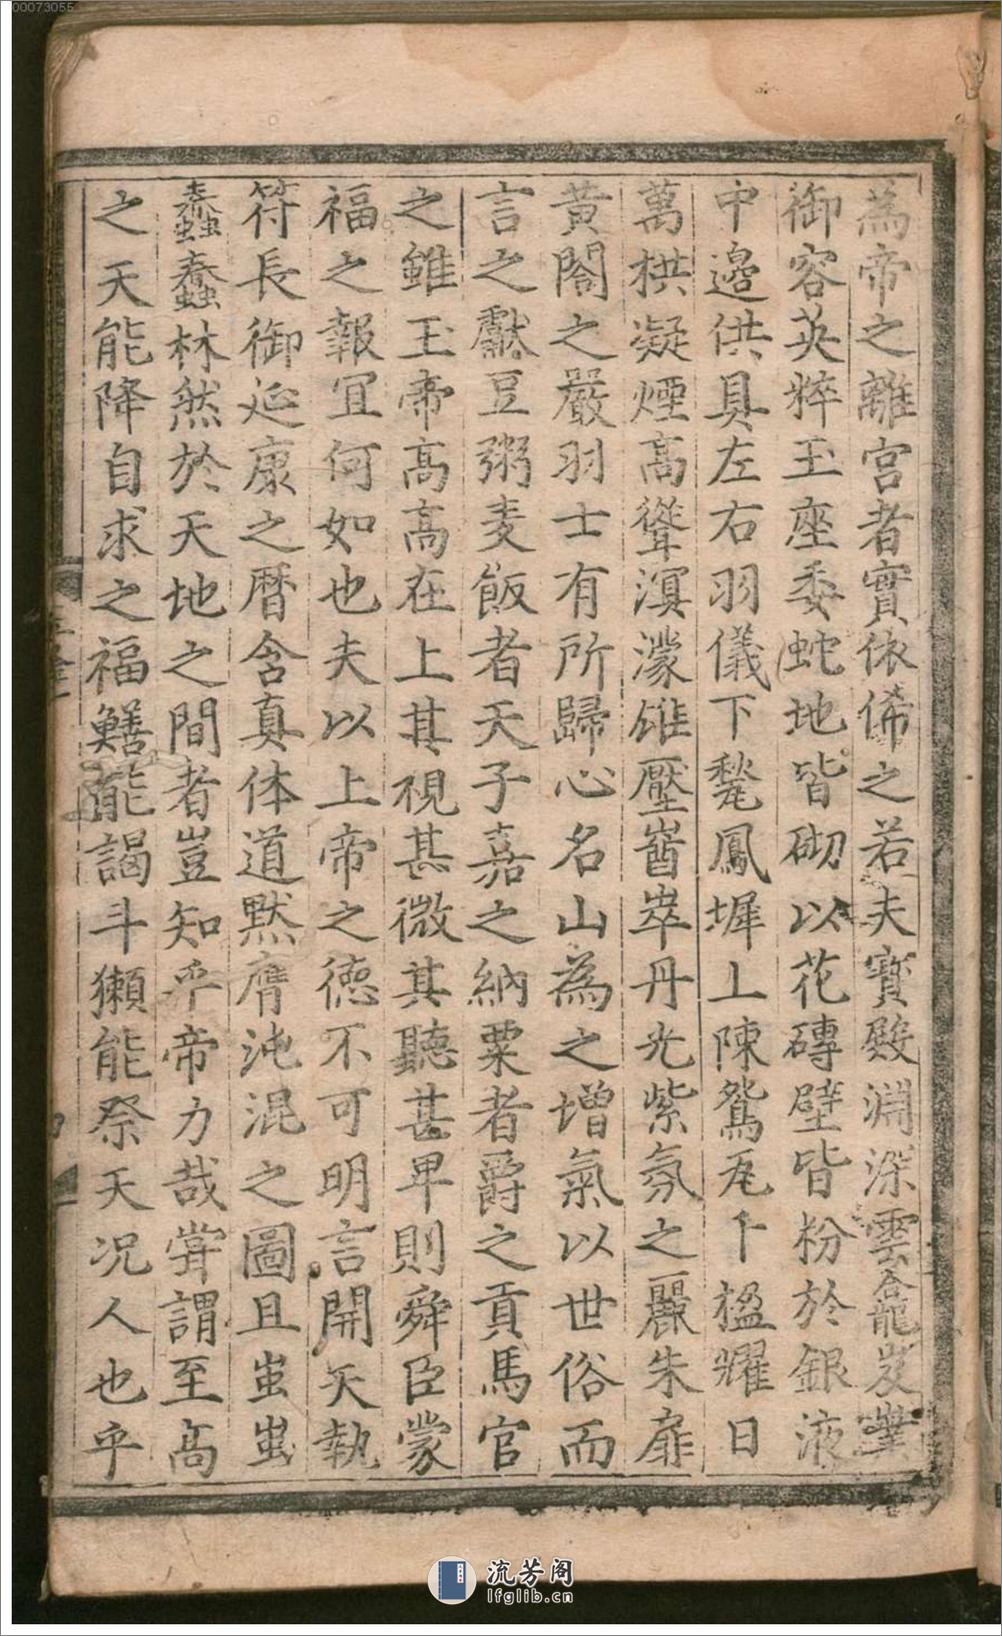 為帝之離宮者實依俙之若夫寶殿淵深雲龕岌業
御容英粹玉座委蛇地皆砌以花磚壁皆粉於銀液
中邊供具左右羽儀下甃鳳墀上陳鴛瓦千楹耀日
萬栱凝煙高聳溟濛雄壓崷崒丹光紫氛之麗朱扉
黃閣之嚴羽士有所歸心名山為之增氣以世俗而
言之獻豆粥麦飯者天子嘉之納粟者爵之貢馬官
之雖玉帝高高在上其視甚微其聽甚卑則舜臣蒙
福之報宜何如也夫以上帝之德不可明言開天執
符長御延康之曆含真体道默膺沌混之圖且蚩蚩
蠢蠢林然於天地之間者豈知乎帝力哉嘗謂至高
之天能降自求之福鱔能謁斗獺能祭天况人也乎
00073055
流芳阁
lfglib.cn